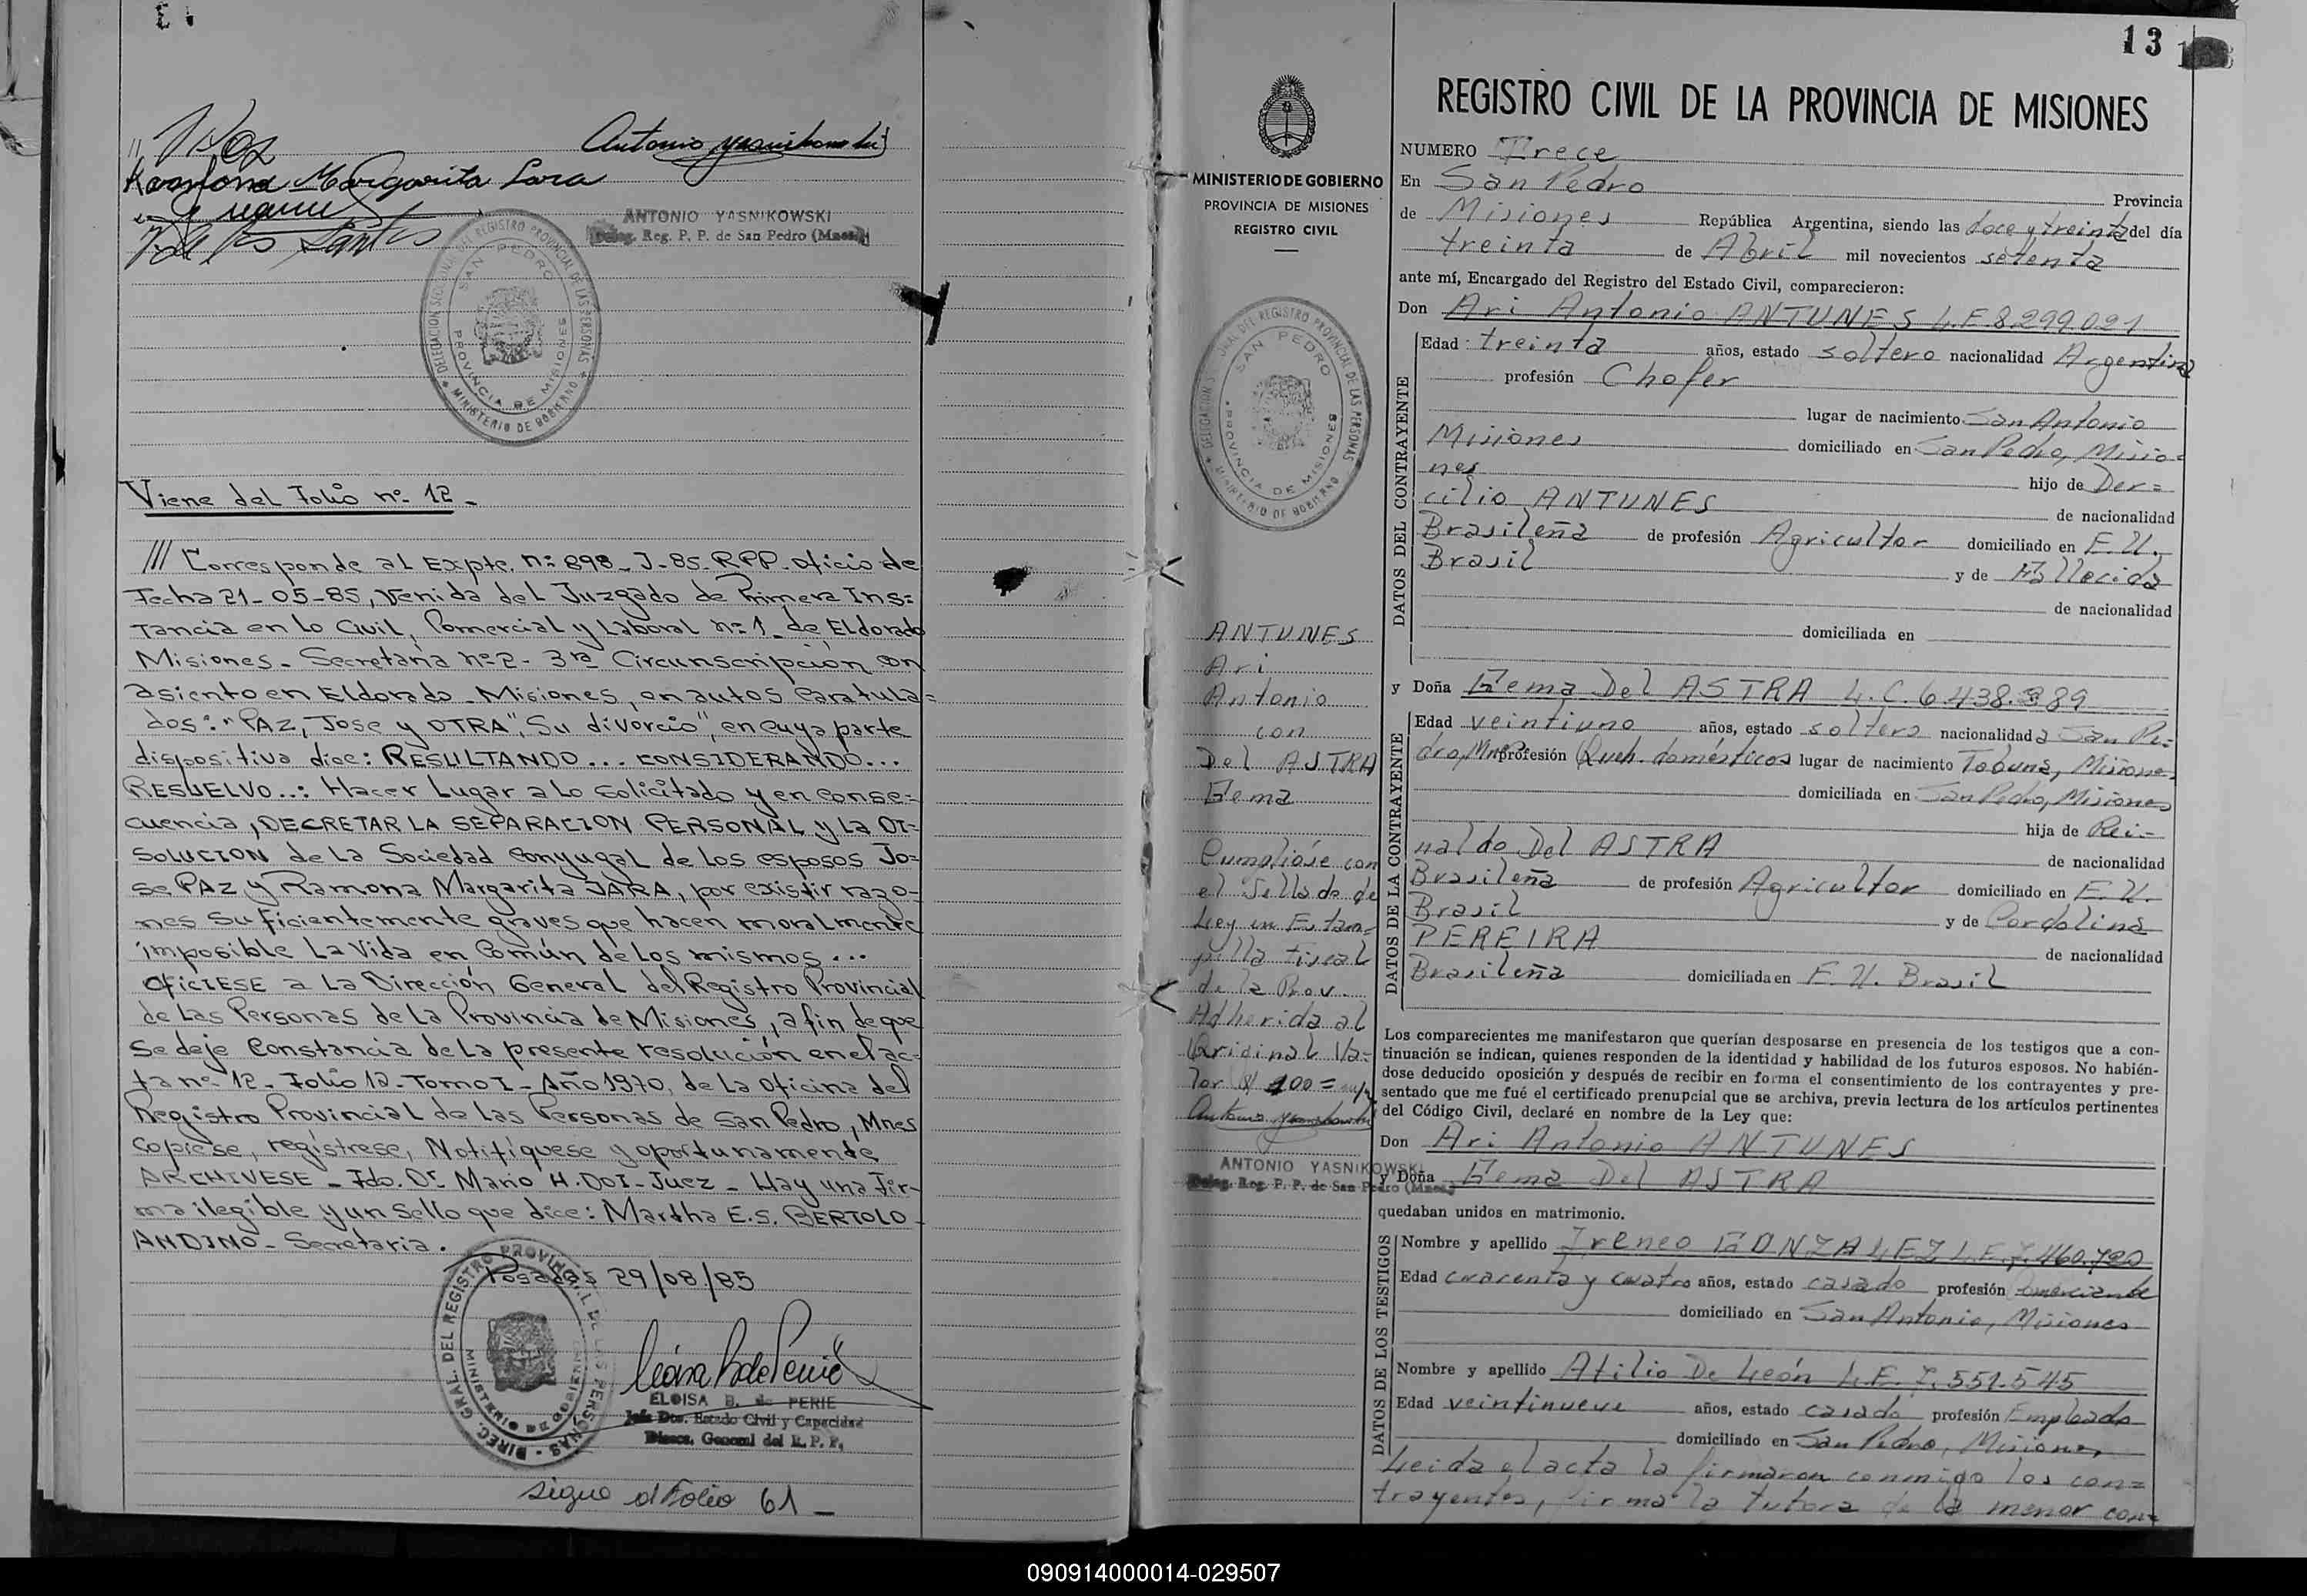 Antonio Yasnikowski
Ramona Margarita Jara
ANTONIO YASNIKOWSKI
Deleg. Reg. P. P. de San Pedro (Mnes.)
DELEGACION SECCIONAL DEL REGISTRO PROVINCIAL DE LAS PERSONAS
SAN PEDRO
PROVINCIA DE MISIONES
MINISTERIO DE GOBIERNO
Viene del Folio nº 12 -
/// Corresponde al Expte. nº 898 - J - 85 - RPP - oficio de
Fecha 21 - 05 - 85, venida del Juzgado de Primera Ins=
tancia en lo Civil, Comercial y Laboral nº 1 - de Eldorado
Misiones - Secretaría nº 2 - 3ra Circunscripción con
asiento en Eldorado - Misiones, en autos Caratula=
dos: "PAZ, Jose y OTRA", Su divorcio", en cuya parte
dispositiva dice: RESULTANDO... CONSIDERANDO...
RESUELVO..: Hacer Lugar a lo solicitado y en conse=
cuencia, DECRETAR LA SEPARACION PERSONAL y La DI=
SOLUCION de La Sociedad Conyugal de los esposos Jo=
se PAZ y Ramona Margarita JARA, por existir razo-
nes suficientemente graves que hacen moralmente
imposible La Vida en Común de los mismos...
OFICIESE a La Dirección General del Registro Provincial
de las Personas de la Provincia de Misiones, a fin de que
se deje Constancia de La presente resolución en el ac=
ta nº 12 - Folio 12 - Tomo I - Año 1970, de La oficina del
Registro Provincial de las Personas de San Pedro, Mnes
Copiese, regístrese, Notifíquese y oportunamente
ARCHIVESE - Fdo. Dr. Mario H. DOI - Juez - Hay una fir-
ma ilegible y un Sello que dice: Martha E.S. BERTOLO
ANDINO - Secretaria.
Posadas 29/08/85
DIREC. GRAL. DEL REGISTRO PROVINCIAL DE LAS PERSONAS
MINISTERIO DE GOBIERNO
ELOISA B. de PERIE
Jefe Dto. Estado Civil y Capacidad
Direcc. General del R. P. P.
sigue al folio 61 -
13
MINISTERIO DE GOBIERNO
PROVINCIA DE MISIONES
REGISTRO CIVIL
DELEGACION SECCIONAL DEL REGISTRO PROVINCIAL DE LAS PERSONAS
SAN PEDRO
PROVINCIA DE MISIONES
MINISTERIO DE GOBIERNO
ANTUNES
Ari
Antonio
con
Del ASTRA
Gema
Cumplióse con
el Sellado de
Ley en Estam=
pilla Fiscal
de la Prov.
Adherida al
Original Va=
lor $ 100 = m/n
Antonio Yasnikowski
ANTONIO YASNIKOWSKI
Deleg. Reg. P. P. de San Pedro (Mnes.)
REGISTRO CIVIL DE LA PROVINCIA DE MISIONES
NUMERO Trece
En San Pedro Provincia
de Misiones República Argentina, siendo las doce y treinta del día
treinta de Abril mil novecientos setenta
ante mí, Encargado del Registro del Estado Civil, comparecieron:
Don Ari Antonio ANTUNES L.E. 8.299.021
DATOS DEL CONTRAYENTE
Edad treinta años, estado soltero nacionalidad Argentina
profesión Chofer
lugar de nacimiento San Antonio
Misiones domiciliado en San Pedro, Misio=
nes hijo de Der=
cilio ANTUNES de nacionalidad
Brasileña de profesión Agricultor domiciliado en E.U.
Brasil y de Fallecida
de nacionalidad
domiciliada en
y Doña Gema Del ASTRA L.C. 6.438.389
DATOS DE LA CONTRAYENTE
Edad veintiuno años, estado soltera nacionalidad a San Pe=
dro, Mnes profesión Queh. domésticos lugar de nacimiento Tobuna, Misiones
domiciliada en San Pedro, Misiones
hija de Rei=
naldo Del ASTRA de nacionalidad
Brasileña de profesión Agricultor domiciliado en E.U.
Brasil y de Cordolina
PEREIRA de nacionalidad
Brasileña domiciliada en E.U. Brasil
Los comparecientes me manifestaron que querían desposarse en presencia de los testigos que a con-
tinuación se indican, quienes responden de la identidad y habilidad de los futuros esposos. No habién-
dose deducido oposición y después de recibir en forma el consentimiento de los contrayentes y pre-
sentado que me fué el certificado prenupcial que se archiva, previa lectura de los artículos pertinentes
del Código Civil, declaré en nombre de la Ley que:
Don Ari Antonio ANTUNES
y Doña Gema Del ASTRA
quedaban unidos en matrimonio.
DATOS DE LOS TESTIGOS
Nombre y apellido Ireneo GONZALEZ L.E. 7.460.720
Edad cuarenta y cuatro años, estado casado profesión Comerciante
domiciliado en San Antonio, Misiones
Nombre y apellido Atilio De León L.E. 7.551.545
Edad veintinueve años, estado casado profesión Empleado
domiciliado en San Pedro, Misiones,
Leida el acta la firmaron conmigo los con=
trayentes, firma la tutora de la menor con=
090914000014-029507